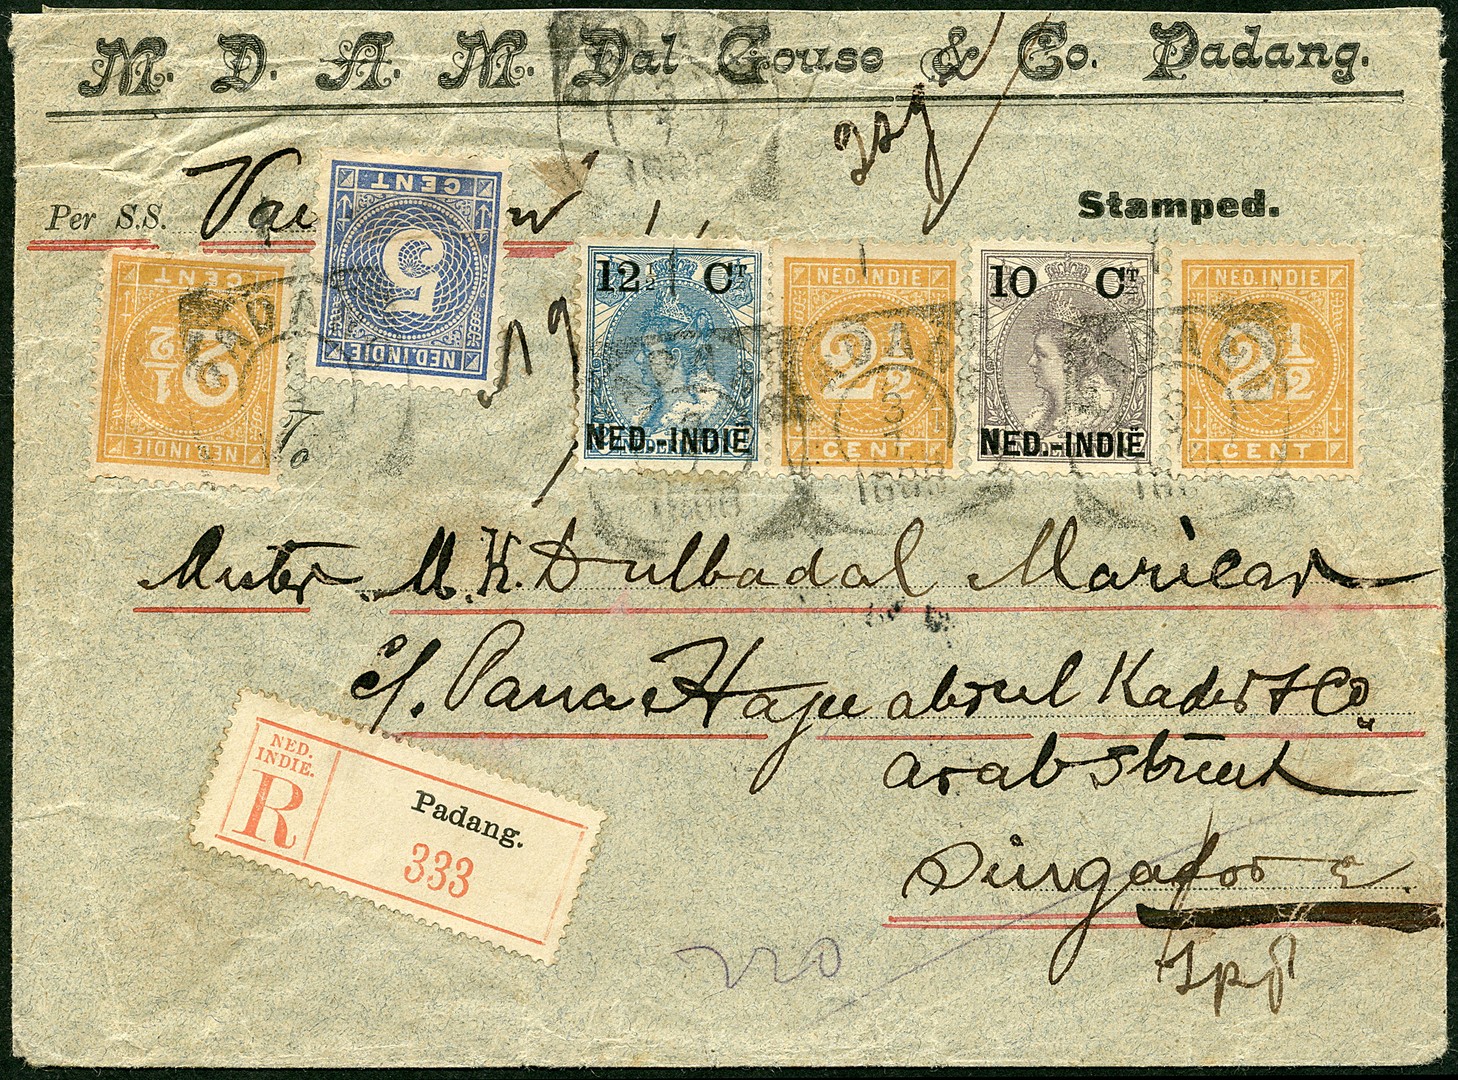 M. D. A. M. Dal Gouse & Co. Padang.
Per S.S.
Stamped.
CENT
5
NED.INDIE
CENT
2 1/2
NED.INDIE
12 1/2 CT
NED.-INDIË
NED.INDIE
2 1/2
CENT
10 CT
NED.-INDIË
NED.INDIE
2 1/2
CENT
Mister M. K. Dulbadal Maricar
c/. Pana Hajee abdul Kader & Co
arab street
Singapore.
NED.
INDIE.
R
Padang.
333
220